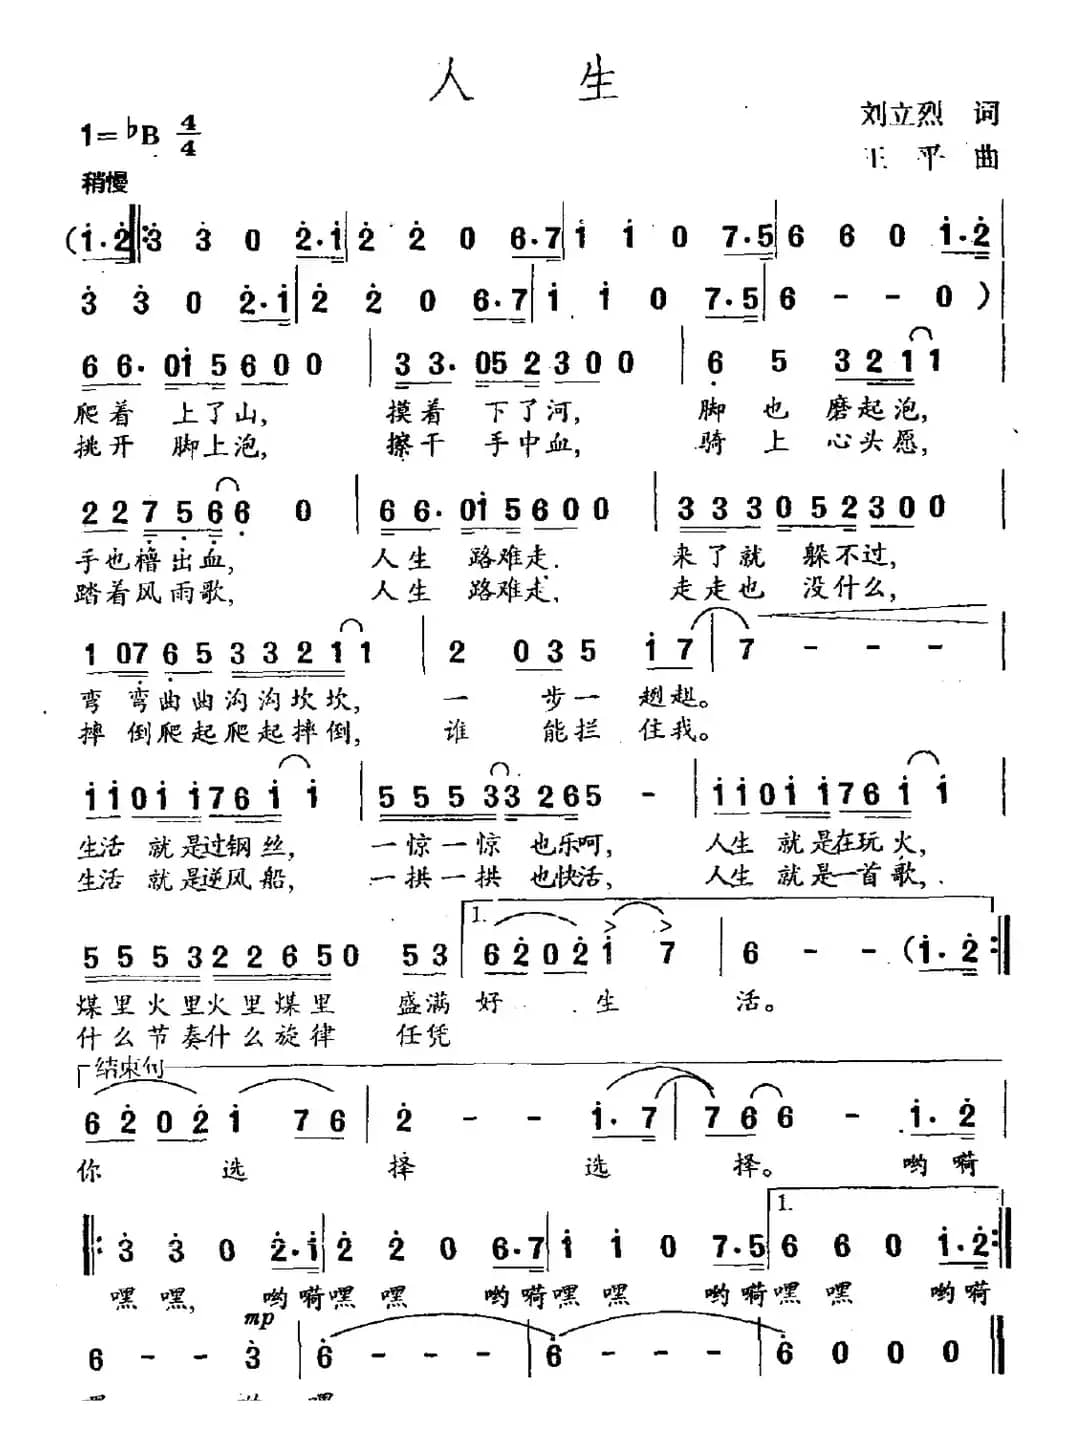 人 生
刘立烈 词
1=♭B 4/4
王 平 曲
稍慢
(i·2 ‖: 3 3 0 2·i | 2 2 0 6·7 | i i 0 7·5 | 6 6 0 i·2 |
3 3 0 2·i | 2 2 0 6·7 | i i 0 7·5 | 6 - - 0 ) |
6 6· 0i 5 6 0 0 | 3 3· 05 2 3 0 0 | 6 5 3 2 1 1 |
爬着 上了山, 摸着 下了河, 脚 也 磨起泡,
挑开 脚上泡, 擦干 手中血, 骑 上 心头愿,
2 2 7 5 6 6 0 | 6 6· 0i 5 6 0 0 | 3 3 3 0 5 2 3 0 0 |
手也橹出血, 人生 路难走. 来了就 躲不过,
踏着风雨歌, 人生 路难走, 走走也 没什么,
1 07 6 5 3 3 2 1 1 | 2 0 3 5 i 7 | 7 - - - |
弯 弯曲曲沟沟坎坎, 一 步一 趔趄。
摔 倒爬起爬起摔倒, 谁 能拦 住我。
i i 0 i i 7 6 i i | 5 5 5 3 3 2 6 5 - | i i 0 i i 7 6 i i |
生活 就是过钢丝, 一惊一惊 也乐呵, 人生 就是在玩火,
生活 就是逆风船, 一拱一拱 也快活, 人生 就是一首歌,
1.
5 5 5 3 2 2 6 5 0 5 3 | 6 2 0 2 i 7 | 6 - - (i·2 :‖
煤里火里火里煤里 盛满 好 生 活。
什么节奏什么旋律 任凭
结束句
6 2 0 2 i 7 6 | 2 - - i·7 | 7 6 6 - i·2 |
你 选 择 选 择。 哟嗬
1.
‖: 3 3 0 2·i | 2 2 0 6·7 | i i 0 7·5 | 6 6 0 i·2 :‖
嘿 嘿, 哟嗬嘿 嘿 哟嗬嘿 嘿 哟嗬嘿 嘿 哟嗬
mp
6 - - 3 | 6 - - - | 6 - - - | 6 0 0 0 ‖